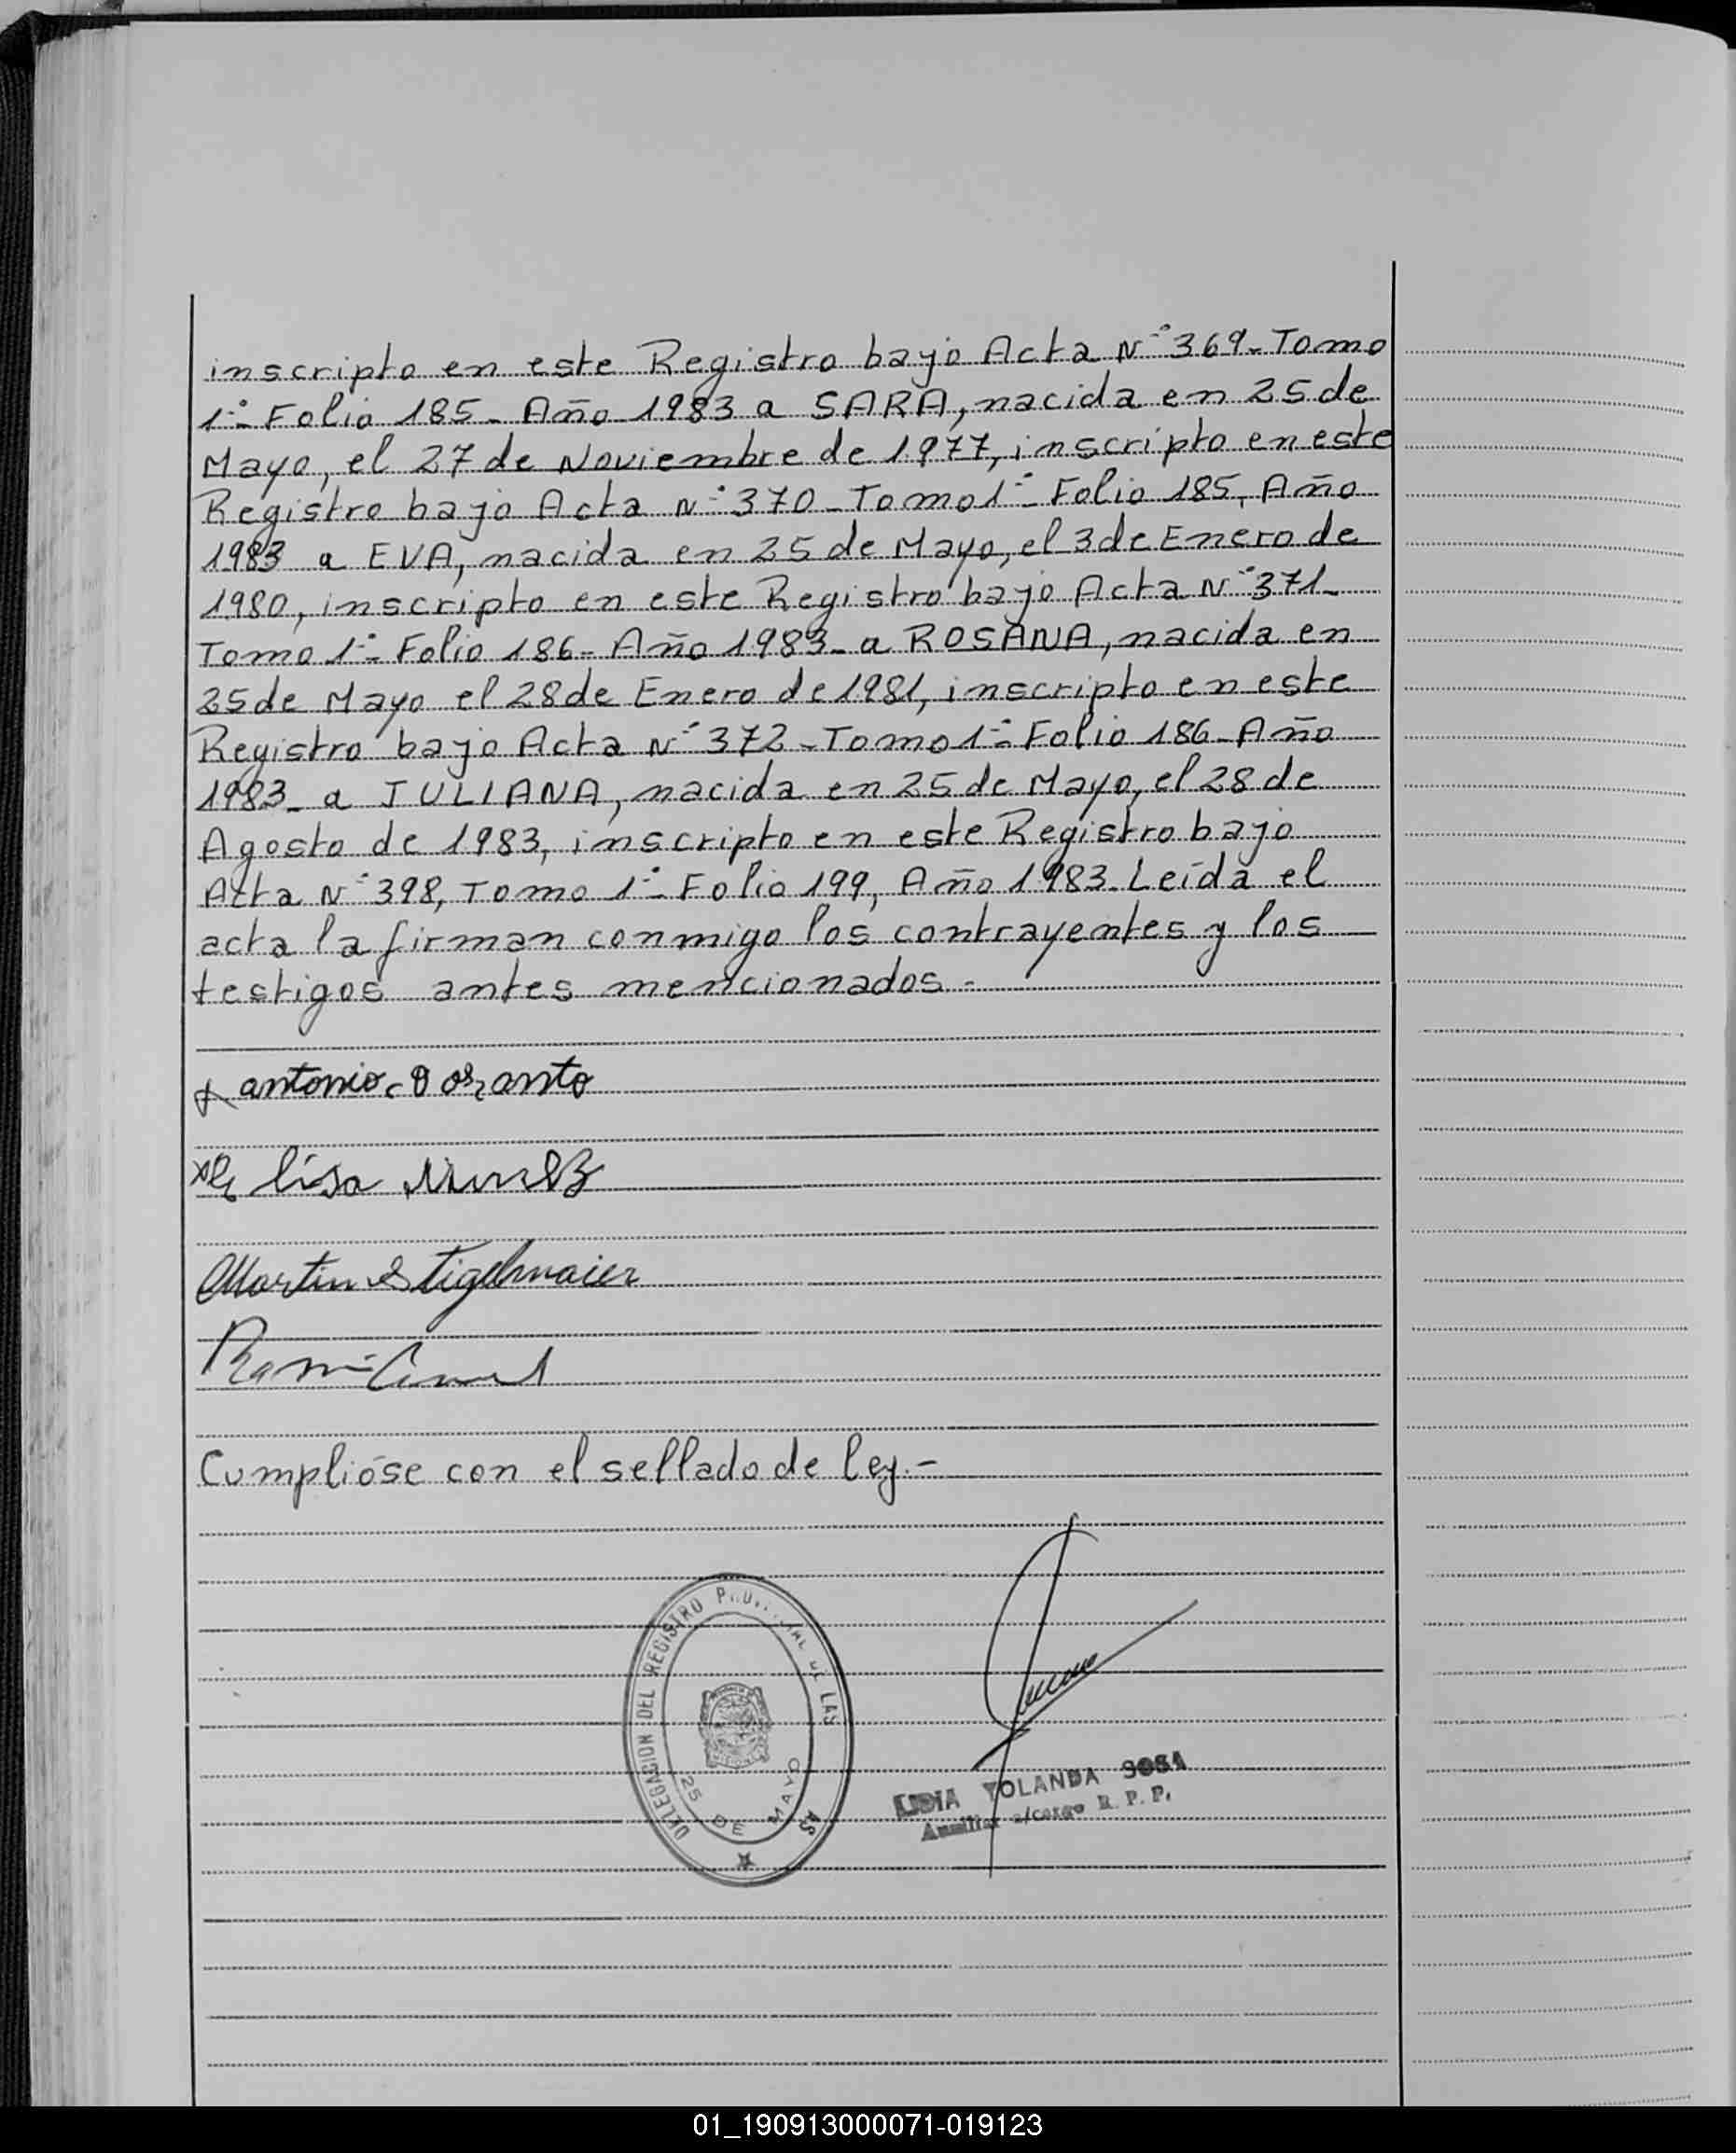 inscripto en este Registro bajo Acta Nº 369- Tomo
1º- Folio 185- Año 1983 a SARA, nacida en 25 de
Mayo, el 27 de Noviembre de 1977, inscripto en este
Registro bajo Acta Nº 370- Tomo 1º- Folio 185, Año
1983 a EVA, nacida en 25 de Mayo, el 3 de Enero de
1980, inscripto en este Registro bajo Acta Nº 371-
Tomo 1º- Folio 186- Año 1983- a ROSANA, nacida en
25 de Mayo el 28 de Enero de 1981, inscripto en este
Registro bajo Acta Nº 372- Tomo 1º- Folio 186- Año
1983- a JULIANA, nacida en 25 de Mayo, el 28 de
Agosto de 1983, inscripto en este Registro bajo
Acta Nº 398, Tomo 1º- Folio 199, Año 1983. Leída el
acta la firman conmigo los contrayentes y los
testigos antes mencionados.-
antonio
Martin Stigelmaier
Cumplióse con el sellado de ley.-
DELEGACION DEL REGISTRO DE LAS
25 DE MAYO
LIDIA YOLANDA SOSA
Auxiliar a/cargo R. P. P.
01_190913000071-019123